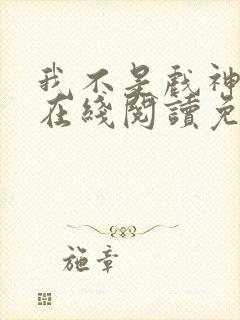 我不是戲神
在綫閱讀免
施章